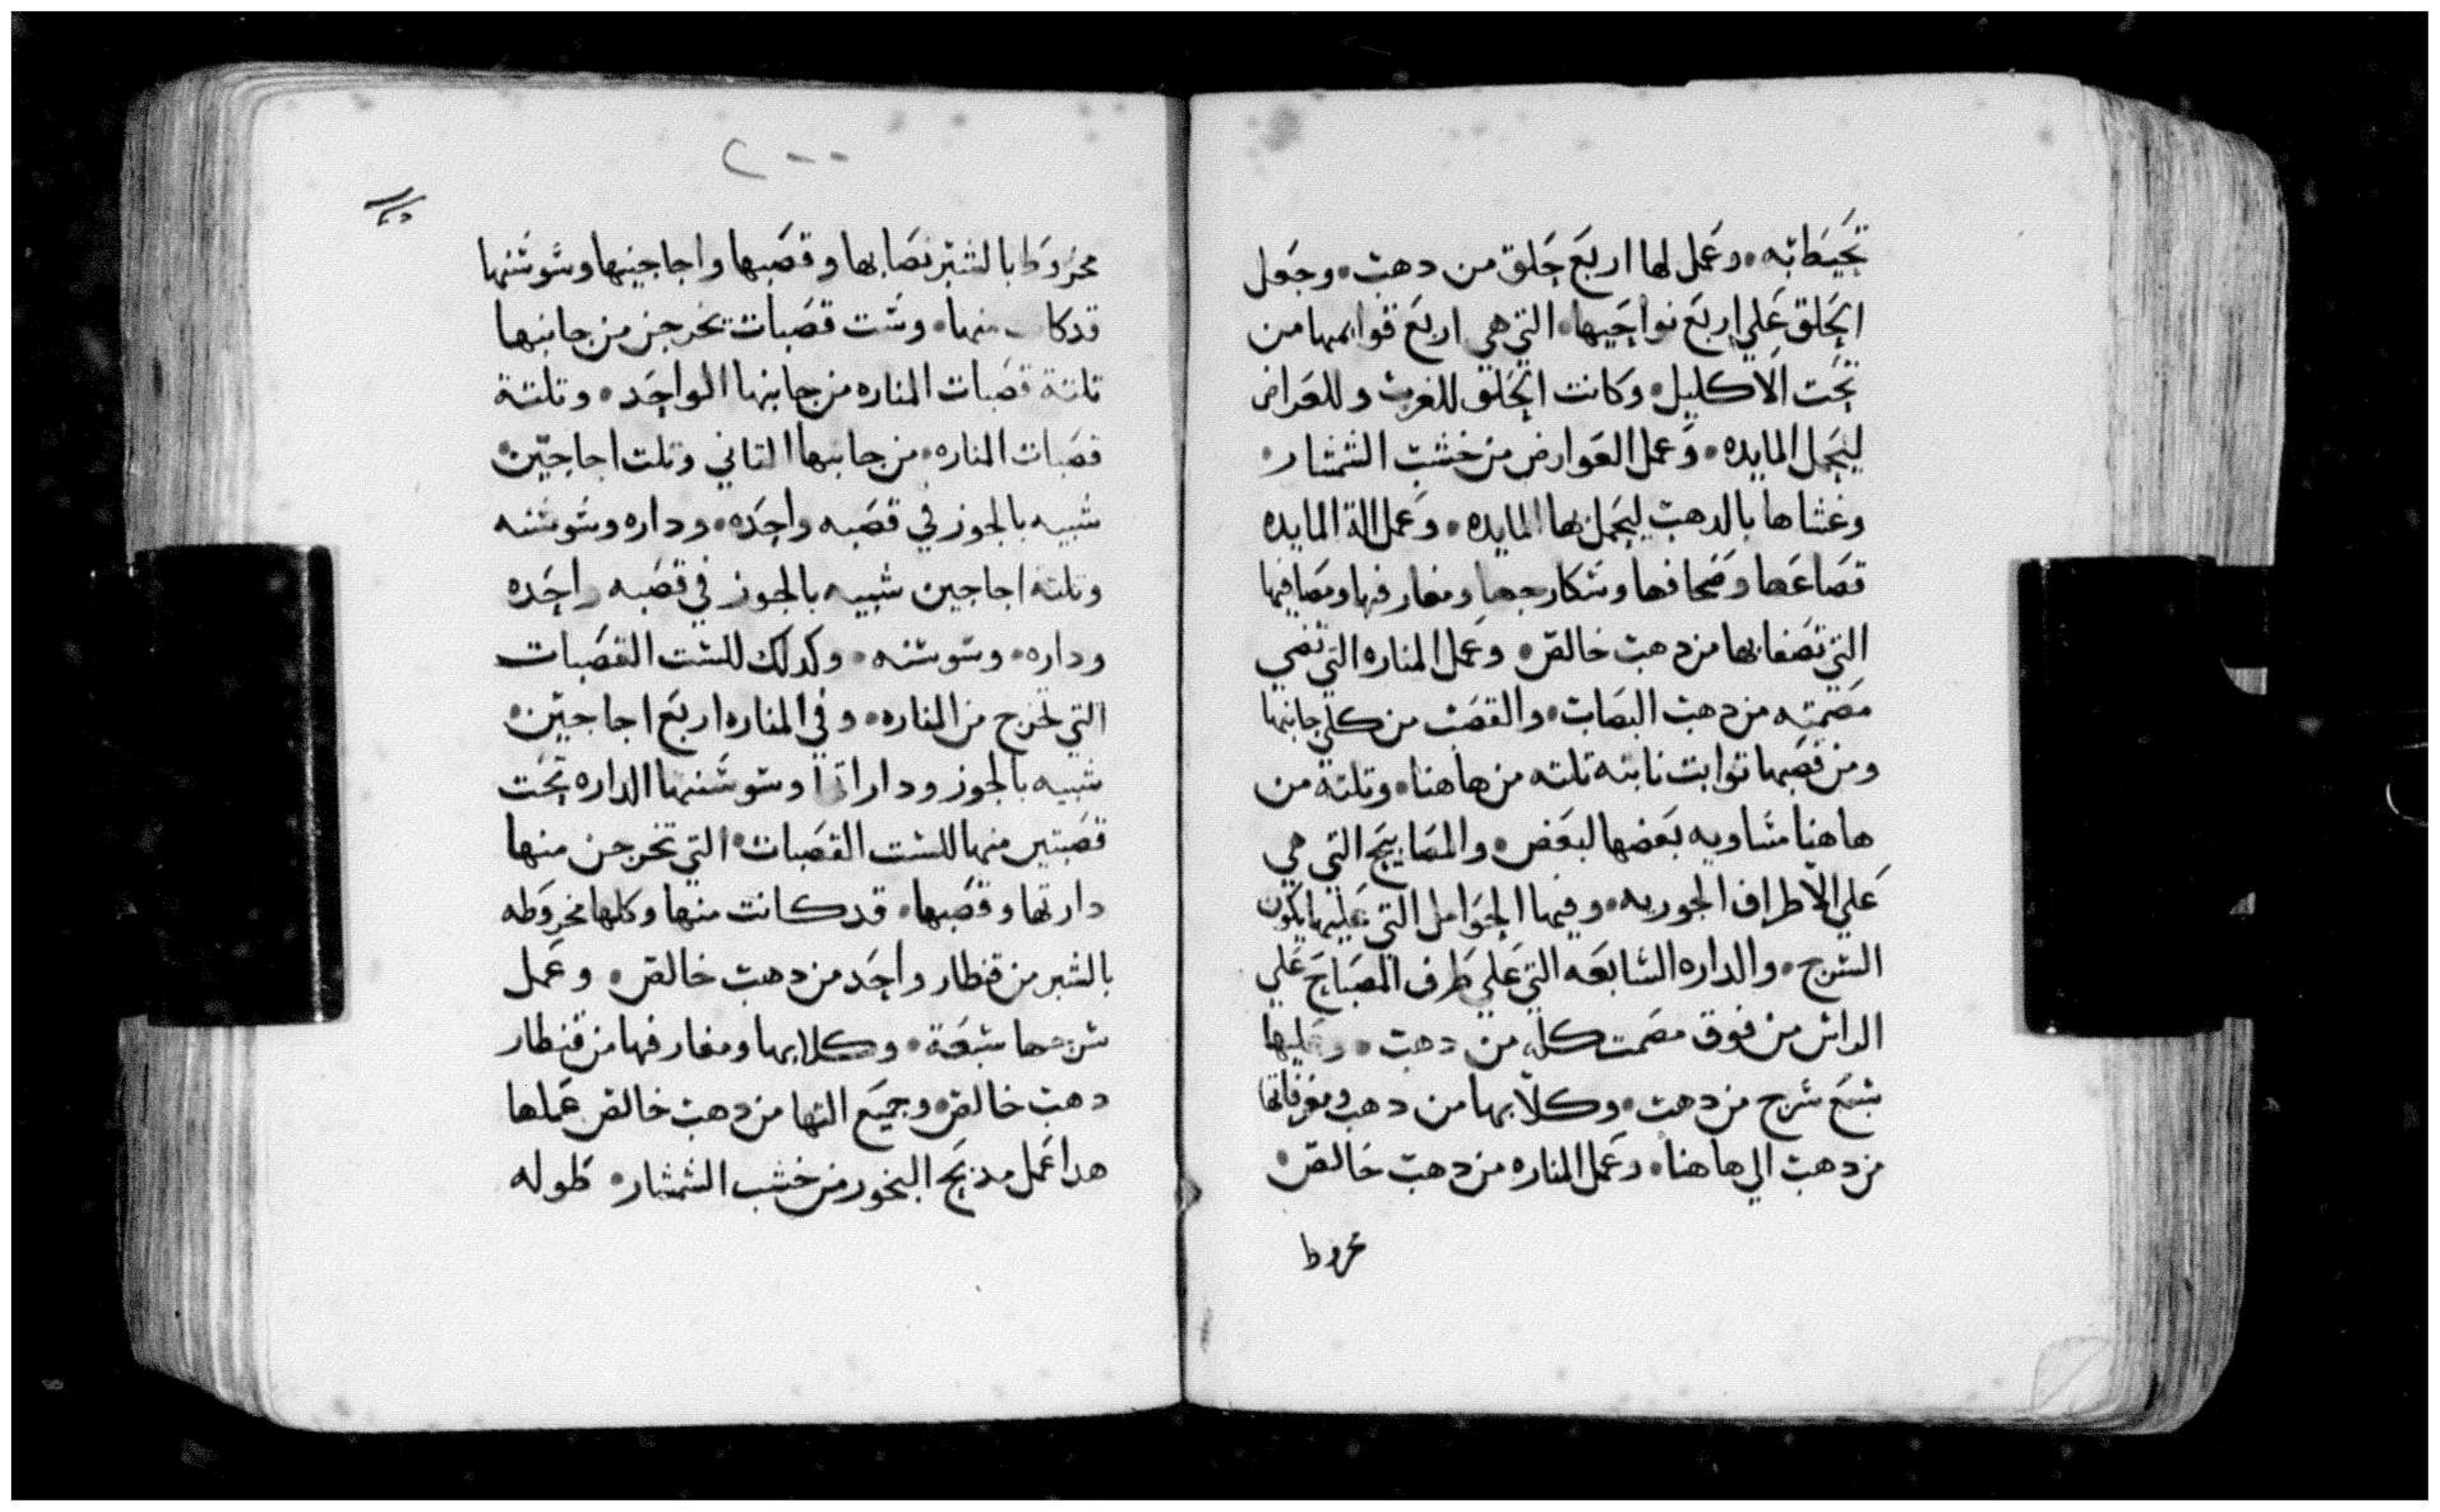 تحيط به٠ وعمل لها اربع حلق من دهب٠ وجعل
الحلق علي اربع نواحيها٠ التي هي اربع قوايمها من
تحت الاكليل٠ وكانت الحلق للغرب وللعراض
ليحمل المايده٠ وعمل العوارض من خشب الشمشار٠
وغشاها بالدهب ليحمل بها المايده٠ وعمل الة المايده
قصاعها وصحافها وسكارجها ومغارفها ومصافيها
التي تصفا بها من دهب خالص٠ وعمل المناره التي تضي
مصمته من دهب البصاب٠ والقصب من كلي جانبها
ومن قصبها توابت نابته تلته من هاهنا٠ وتلته من
هاهنا مساويه بعضها لبعض٠ والمصابيح التي هي
علي الاطراف الجوريه٠ وفيها الحوامل التي عليها يكون
السرج٠ والداره السابعه التي علي طرف المصباح علي
الراس من فوق مصمت كله من دهب٠ وعليها
سبع سرج من دهب٠ وكلابها من دهب ومغرفاتها
من دهب الي هاهنا٠ وعمل المناره من دهب خالص٠
مخروط
٢٠٠
مخروطا بالشبر نصابها وقصبها واجاجينها وسوسنها
قد كانت منها٠ وست قصبات تخرجن من جانبها
تلتة قصبات المناره من جانبها الواحد٠ وتلتة
قصبات المناره٠ من جانبها التاني وتلت اجاجين٠
شبيه بالجوز في قصبه واحده٠ وداره وسوسنه
وتلتة اجاجين شبيه بالجوز في قصبه واحده
وداره٠ وسوسنه٠ وكدلك للست القصبات
التي تخرج من المناره٠ وفي المناره اربع اجاجين٠
شبيه بالجوز وداراتها وسوسنها الداره تحت
قصبتين منها للست القصبات٠ التي تخرجن منها
دارتها وقصبها٠ قد كانت منها وكلها مخروطه
بالشبر من قنطار واحد من دهب خالص٠ وعمل
سرجها سبعة٠ وكلابها ومغارفها من قنطار
دهب خالص٠ وجميع التها من دهب خالص عملها
هدا عمل مدبح البخور من خشب الشمشار٠ طوله